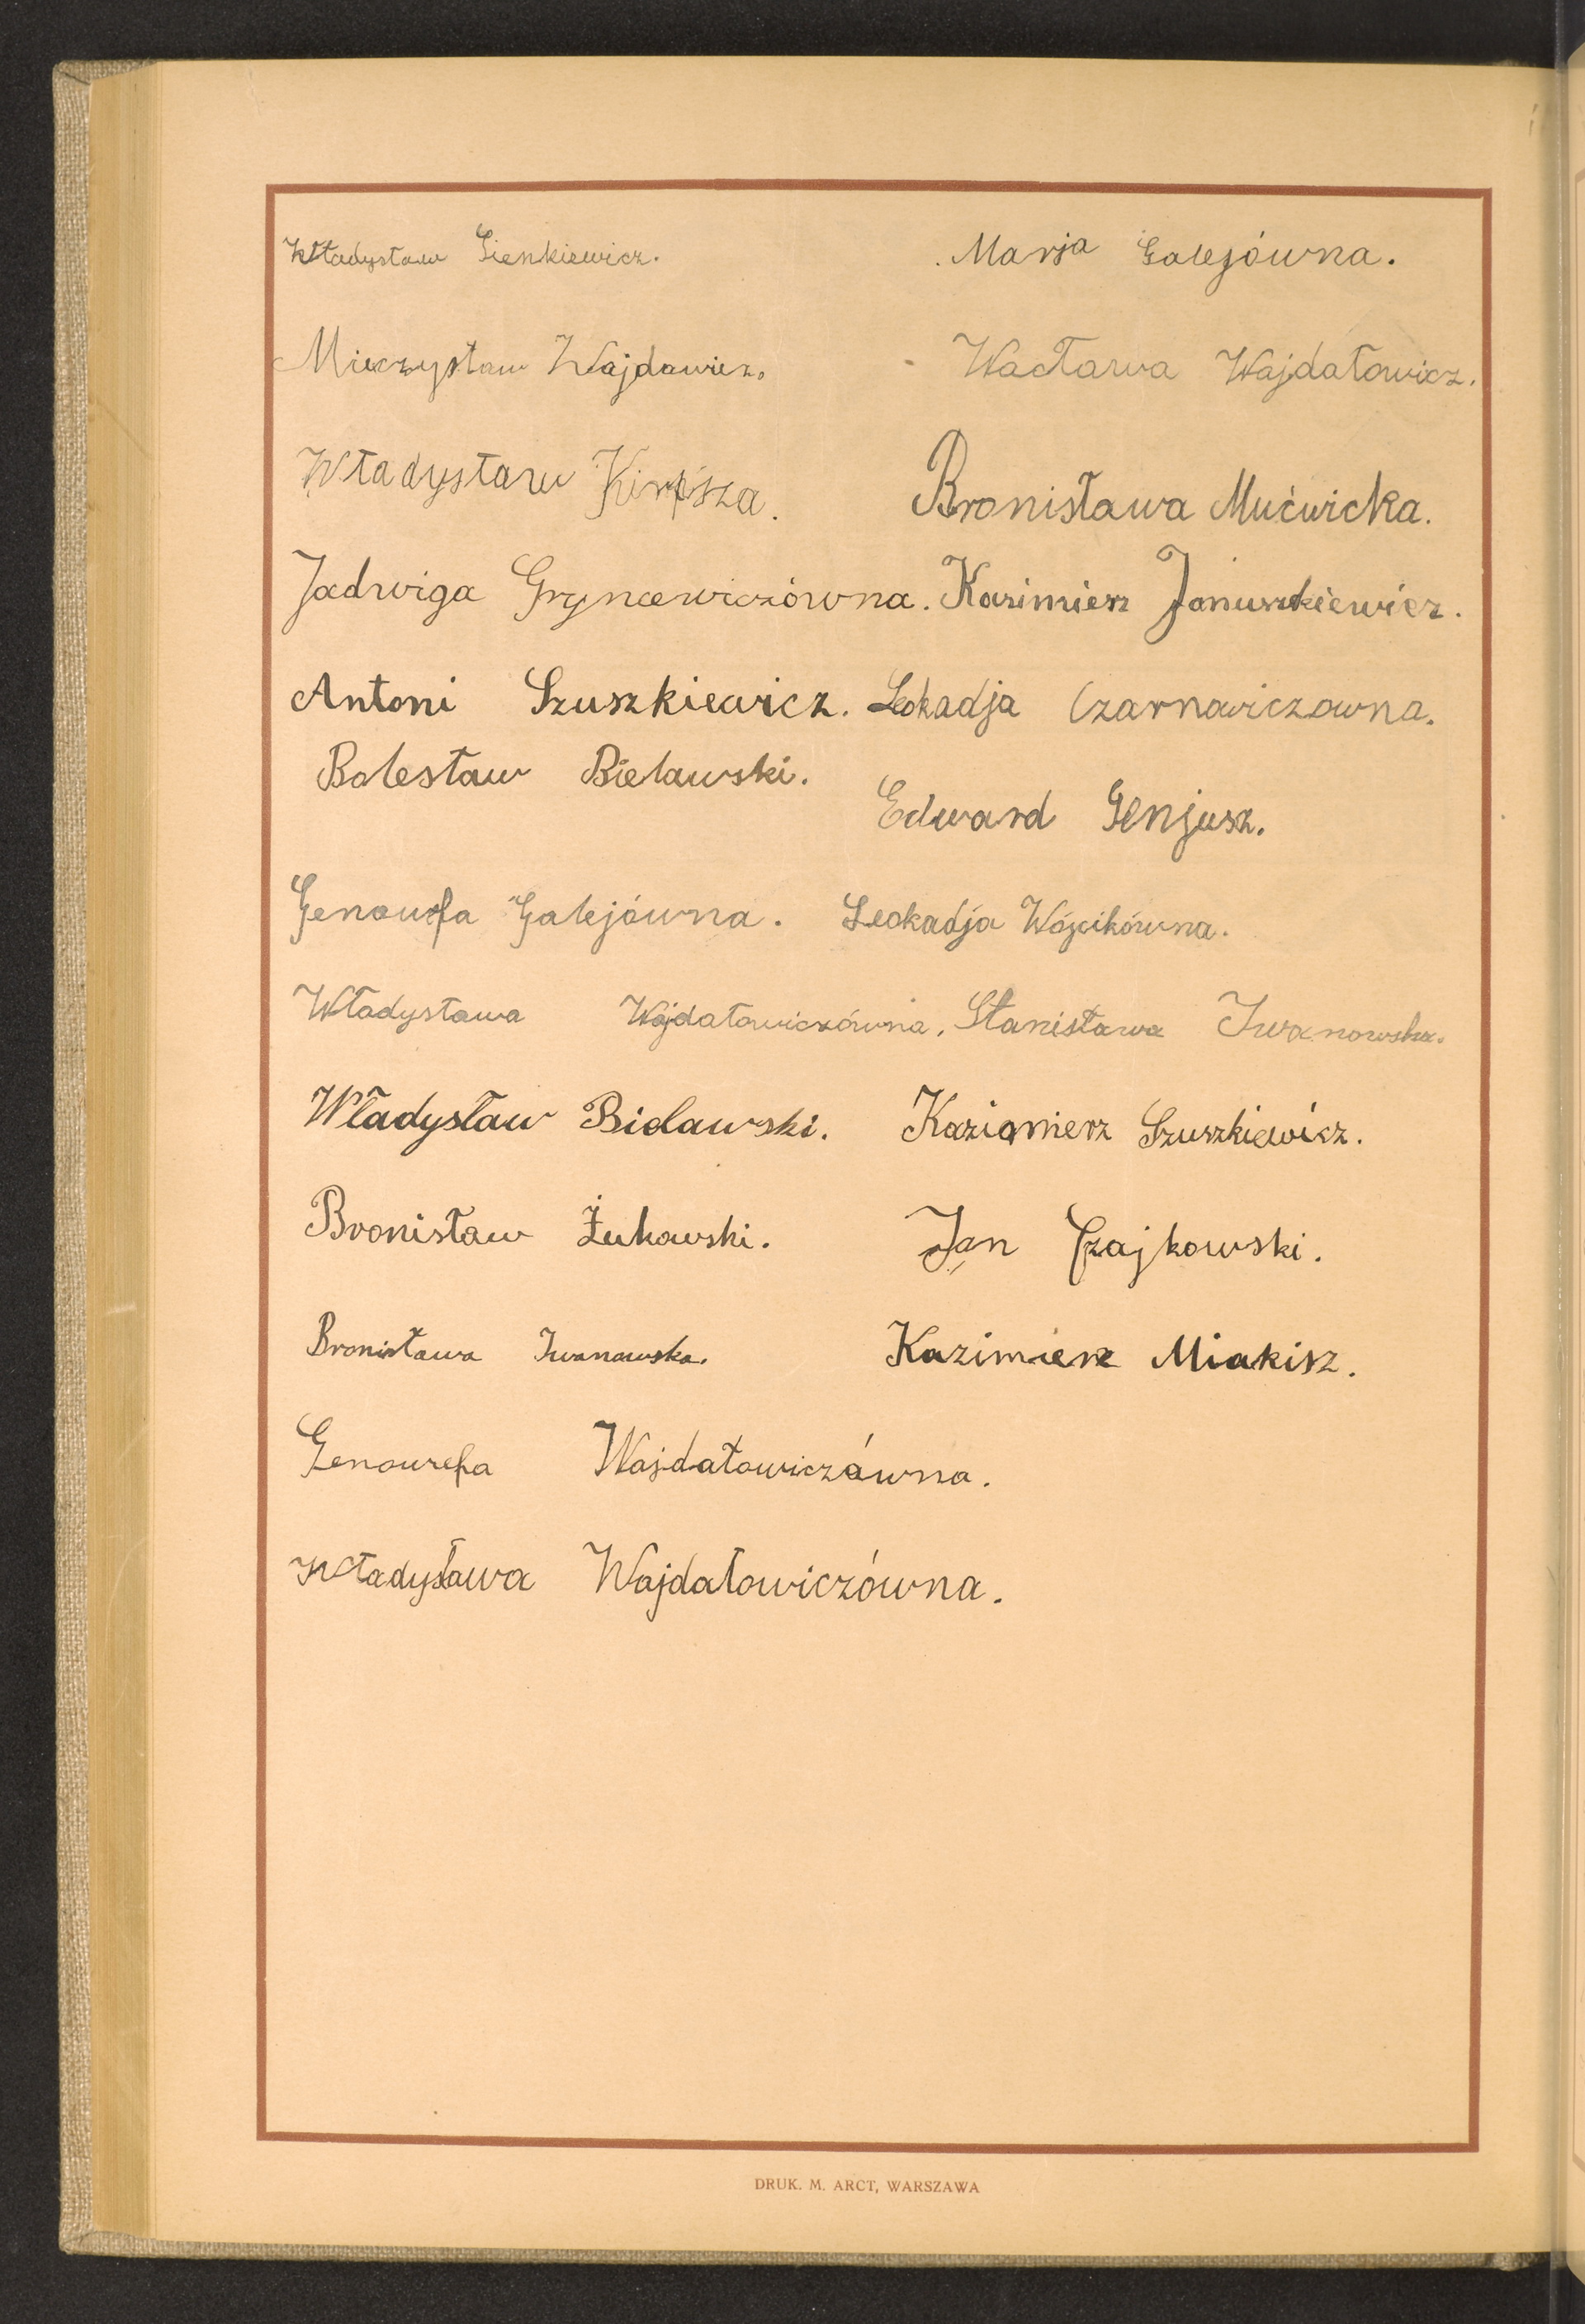 Władysław Sienkiewicz. Marja Galejówna.
Mieczysław Wajdowicz. Wacława Wajdałowicz.
Władysław Kirpsza. Bronisława Mućwicka.
Jadwiga Gryncewiczówna. Kazimierz Januszkiewicz.
Antoni Szuszkiewicz. Leokadja Czarnawiczowna.
Bolesław Bielawski.
Edward Genjusz.
Genowefa Galejówna. Leokadja Wójcikówna.
Władysława Wajdałowiczówna. Stanisława Iwanowska.
Władysław Bielawski. Kazimierz Szuszkiewicz.
Bronisław Żukowski. Jan Czajkowski.
Bronisława Iwanowska. Kazimierz Miakisz.
Genowefa Wajdałowiczówna.
Władysława Wajdałowiczówna.
DRUK. M. ARCT, WARSZAWA